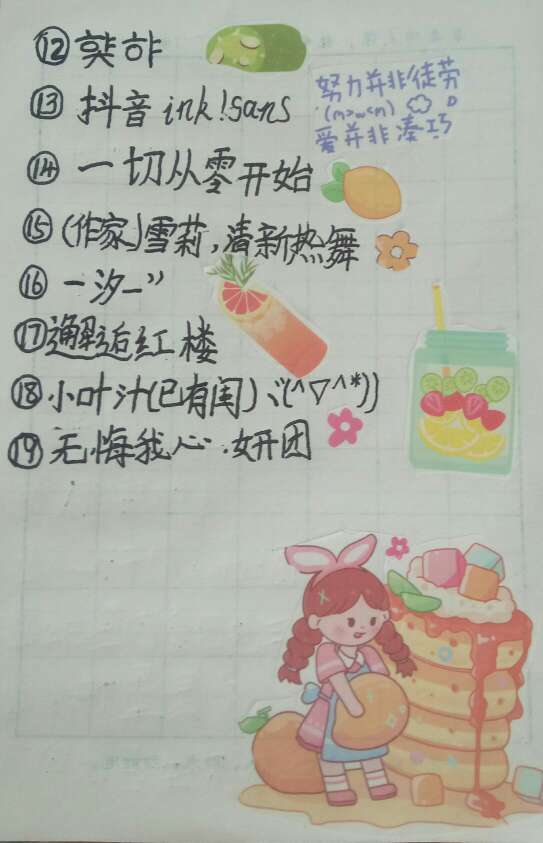 ⑫
⑬ 抖音 ink!sans
努力并非徒劳
(m>w<m)
爱并非凑巧
⑭ 一切从零开始
⑮ (作家)雪莉,清新热舞
⑯ 一汐_”
⑰ 邂逅红楼
⑱ 小叶汁(已有闺)ヾ(^▽^*))
⑲ 无悔我心.妍团